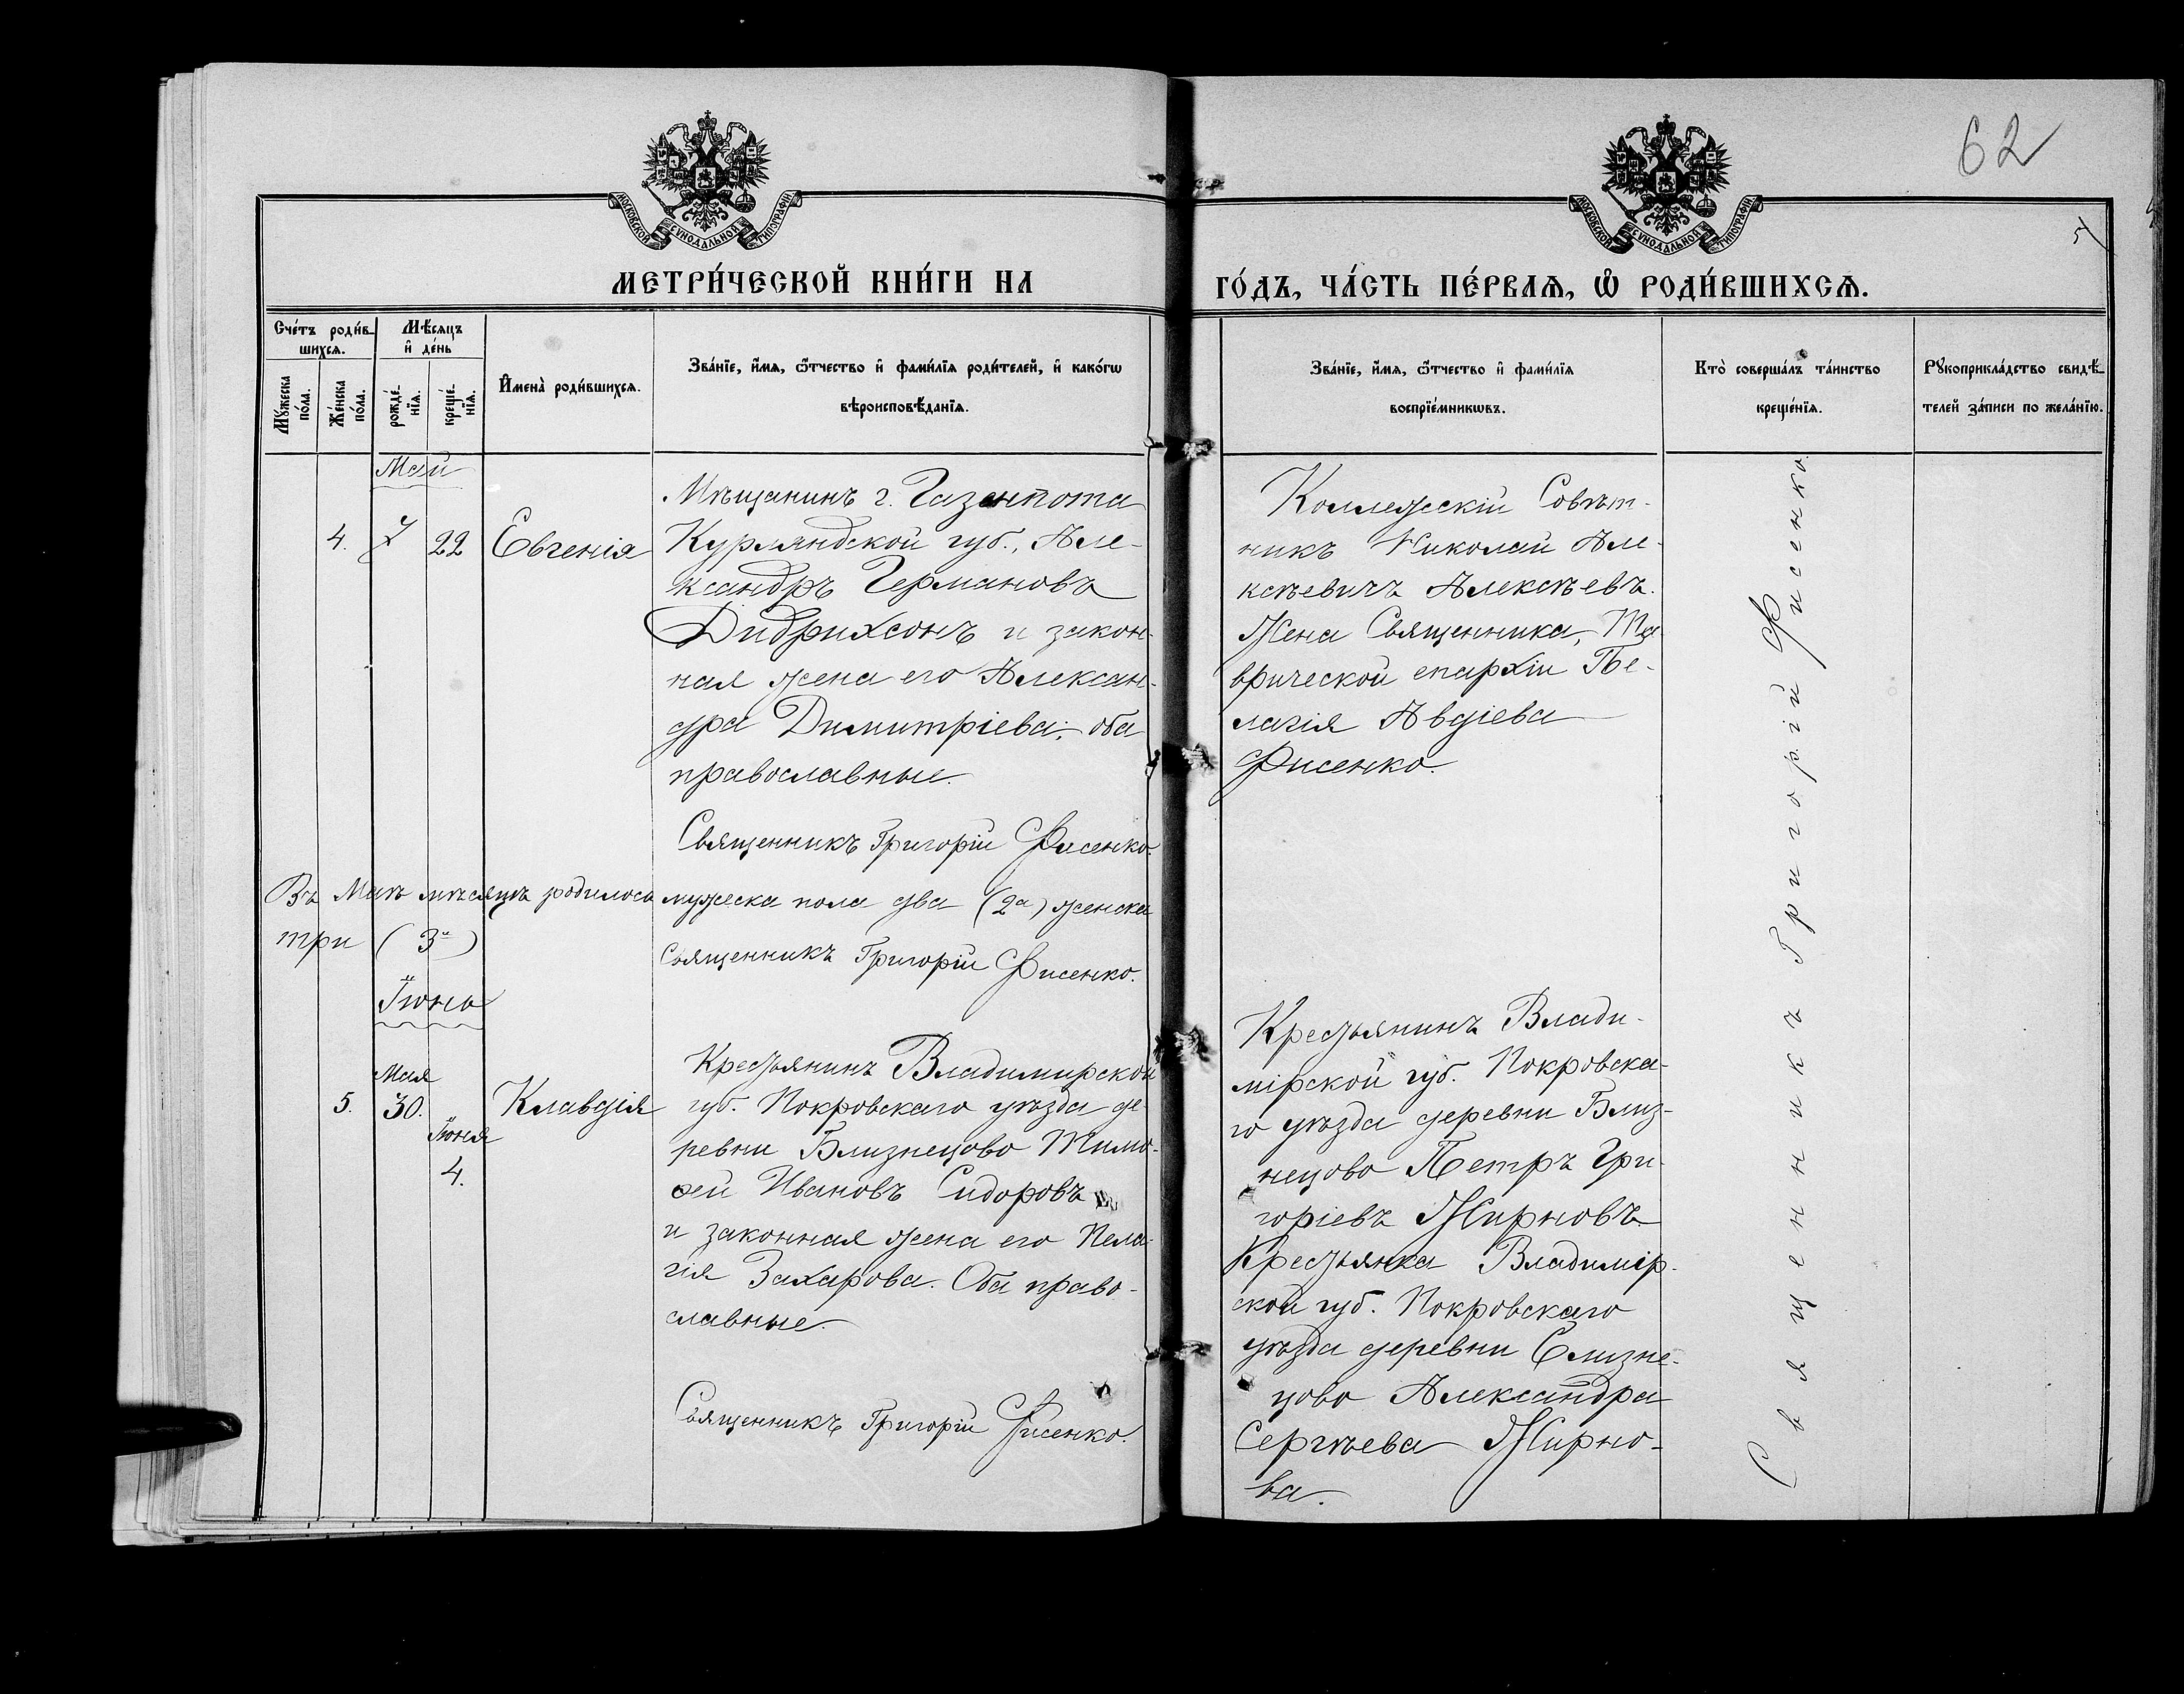 62
5
МОСКОВСКОЙ СѴНОДАЛЬНОЙ ТИПОГРАФІИ
МОСКОВСКОЙ СѴНОДАЛЬНОЙ ТИПОГРАФІИ
МЕТРИ́ЧЕСКОЙ КНИ́ГИ НА
ГО́ДЪ, ЧА́СТЬ ПЕ́РВАѦ, Ѡ҆ РОДИ́ВШИХСѦ.
Сче́тъ роди́в-
шихсѧ.
Мꙋ́жеска
по́ла.
Же́нска
по́ла.
Мѣ́сѧцъ
и҆ де́нь
рожде́-
нїѧ.
креще́-
нїѧ.
И҆мена̀ роди́вшихсѧ.
Зва́нїе, и҆́мѧ, ѻ҆́тчество и҆ фами́лїѧ роди́телей, и҆ како́гѡ
вѣроисповѣ́данїѧ.
Зва́нїе, и҆́мѧ, ѻ҆́тчество и҆ фами́лїѧ
воспрїе́мникѡвъ.
Кто̀ соверша́лъ та́инство
креще́нїѧ.
Рꙋкоприкла́дство свидѣ́-
телей за́писи по жела́нїю.
Май
4.
7
22
Евгенія
Мѣщанинъ г. Газенпота
Курляндской губ., Але-
ксандръ Германовъ
Дидрихсонъ и закон-
ная жена его Алексан-
дра Димитріева; оба
православные.
Священникъ Григорій Фисенко.
Коллежскій Совѣт-
никъ Николай Але-
ксѣевичъ Алексѣевъ.
Жена Священника, Та-
врической епархіи Пе-
лагія Авдіева
Фисенко.
Въ Маѣ мѣсяцѣ родилось мужеска пола два (2а) женска
три (3и)
Священникъ Григорій Фисенко.
Іюнь
5.
Мая
30.
Іюня
4.
Клавдія
Крестьянинъ Владимирской
губ. Покровскаго уѣзда де-
ревни Близнецово Тимо-
ѳей Ивановъ Сидоровъ
и законная жена его Пела-
гія Захарова. Оба право-
славные.
Священникъ Григорій Фисенко.
Крестьянинъ Влади-
мірской губ. Покровска-
го уѣзда деревни Близ-
нецово Петръ Гри-
горіевъ Жирновъ
Крестьянка Владимір-
ской губ. Покровскаго
уѣзда деревни Слизне-
цово Александра
Сергѣева Жирно-
ва.
Священникъ Григорій Фисенко